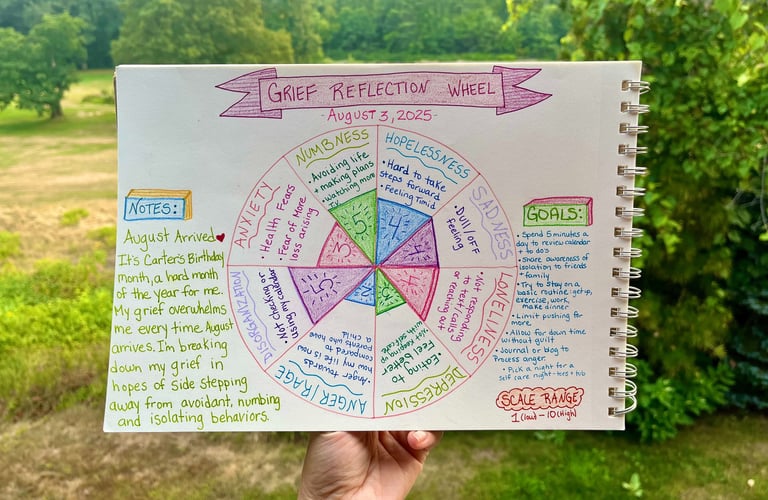 GRIEF REFLECTION WHEEL
-August 3, 2025-
NUMBNESS
• Avoiding life
+ making plans
• watching more
HOPELESSNESS
• Hard to take
steps forward
• Feeling Timid
SADNESS
• Dull/OFF
feeling
LONELINESS
• Not responding
to texts/calling
or reaching out
DEPRESSION
• Eating to
Feel better
• Not keeping up
with self care
ANGER/RAGE
• Anger towards
how my life is now
compared to
parents who have
a child
DISORGANIZATION
• Not checking or
using my calendar
ANXIETY
• Health Fears
• Fear of More
loss arising
5
4
4
4
3
3
5
3
NOTES:
August Arrived ♥
It's Carter's Birthday
month, a hard month
of the year for me.
My grief overwhelms
me every time August
arrives. I'm breaking
down my grief in
hopes of side stepping
away from avoidant, numbing
and isolating behaviors.
GOALS:
• Spend 5 minutes a
day to review calendar
+ to do's
• Share awareness of
isolation to friends
+ family
• Try to stay on a
basic routine: get up,
exercise, work,
make dinner
• Limit pushing for
more.
• Allow for down time
without guilt
• Journal or blog to
Process anger
• Pick a night for a
self care night-
SCALE RANGE
1 (low) - 10 (High)